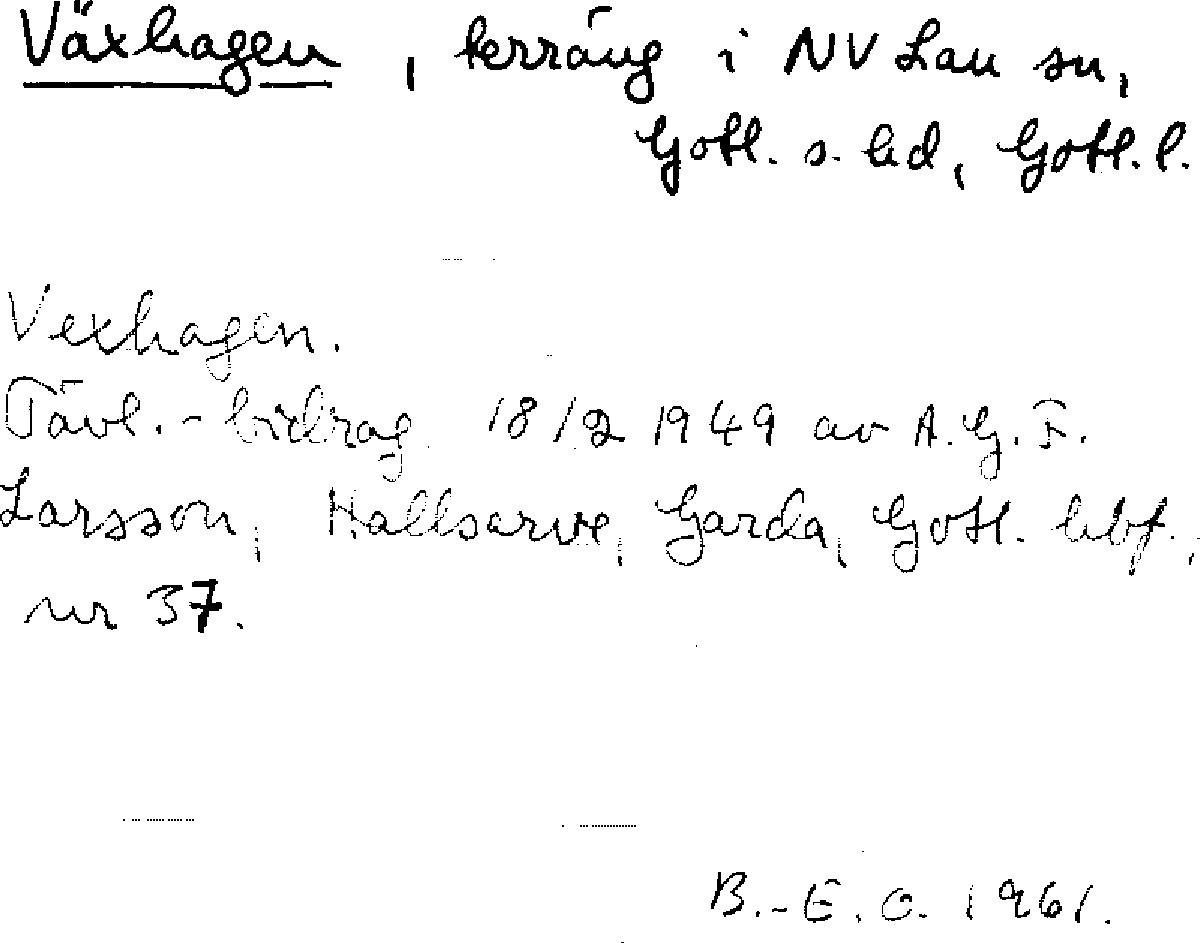 Växhagen, terräng i NV Lau sn,
Gotl. s. hd, Gotl. l.
Vexhagen.
Tävl.-bidrag 18/2 1949 av A.G.F.
Larsson, Hallsarve, Garda, Gotl. hbf.,
nr 37.
B.-E. O. 1961.